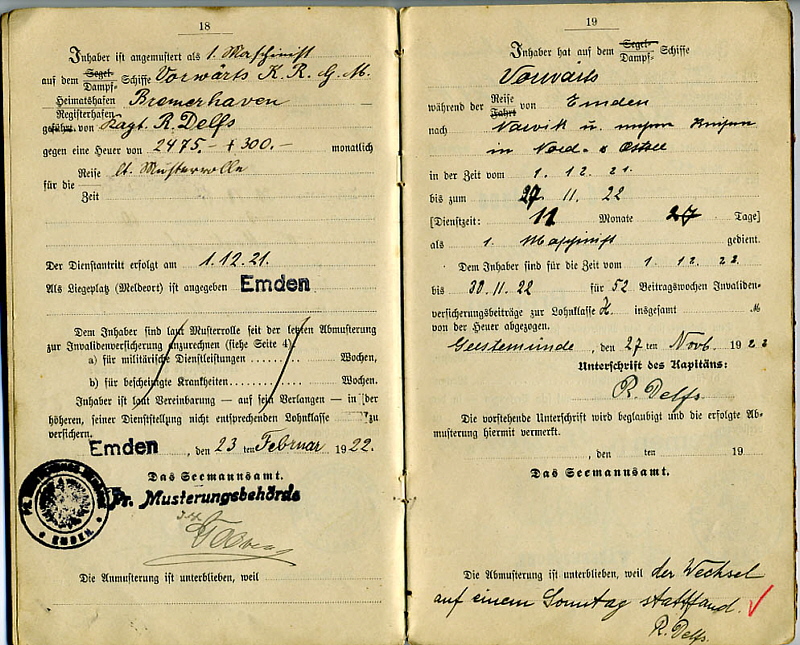 18
Inhaber ist angemustert als 1. Maschinist
auf dem Segel- Dampf- Schiffe Vorwärts K. R. G. M.
Heimatshafen Registerhafen Bremerhaven
geführt von Kapt. R. Delfs
gegen eine Heuer von 2475.- + 300.- monatlich
für die Reise Zeit lt. Musterrolle
Der Dienstantritt erfolgt am 1.12.21.
Als Liegeplatz (Meldeort) ist angegeben Emden
Dem Inhaber sind laut Musterrolle seit der letzten Abmusterung
zur Invalidenversicherung anzurechnen (siehe Seite 4):
a) für militärische Dienstleistungen Wochen,
b) für bescheinigte Krankheiten Wochen.
Inhaber ist laut Vereinbarung — auf sein Verlangen — in der
höheren, seiner Dienststellung nicht entsprechenden Lohnklasse zu
versichern.
Emden, den 23 ten Februar 1922.
Das Seemannsamt.
Pr. Musterungsbehörde
EMDEN
Die Anmusterung ist unterblieben, weil
19
Inhaber hat auf dem Segel- Dampf- Schiffe
Vorwärts
während der Reise Fahrt von Emden
nach Narvik u.
in Nord- & Ostsee
in der Zeit vom 1. 12. 21.
bis zum 27. 11. 22
[Dienstzeit: 11 Monate 27 Tage]
als 1. Maschinist gedient.
Dem Inhaber sind für die Zeit vom 1. 12.
bis 30.11.22 für 52 Beitragswochen Invaliden-
versicherungsbeiträge zur Lohnklasse insgesamt M
von der Heuer abgezogen.
Geestemünde, den 27 ten Novb. 192
Unterschrift des Kapitäns:
R. Delfs.
Die vorstehende Unterschrift wird beglaubigt und die erfolgte Ab-
musterung hiermit vermerkt.
, den ten 19
Das Seemannsamt.
Die Abmusterung ist unterblieben, weil der Wechsel
auf einem Sonntag stattfand.
R. Delfs.